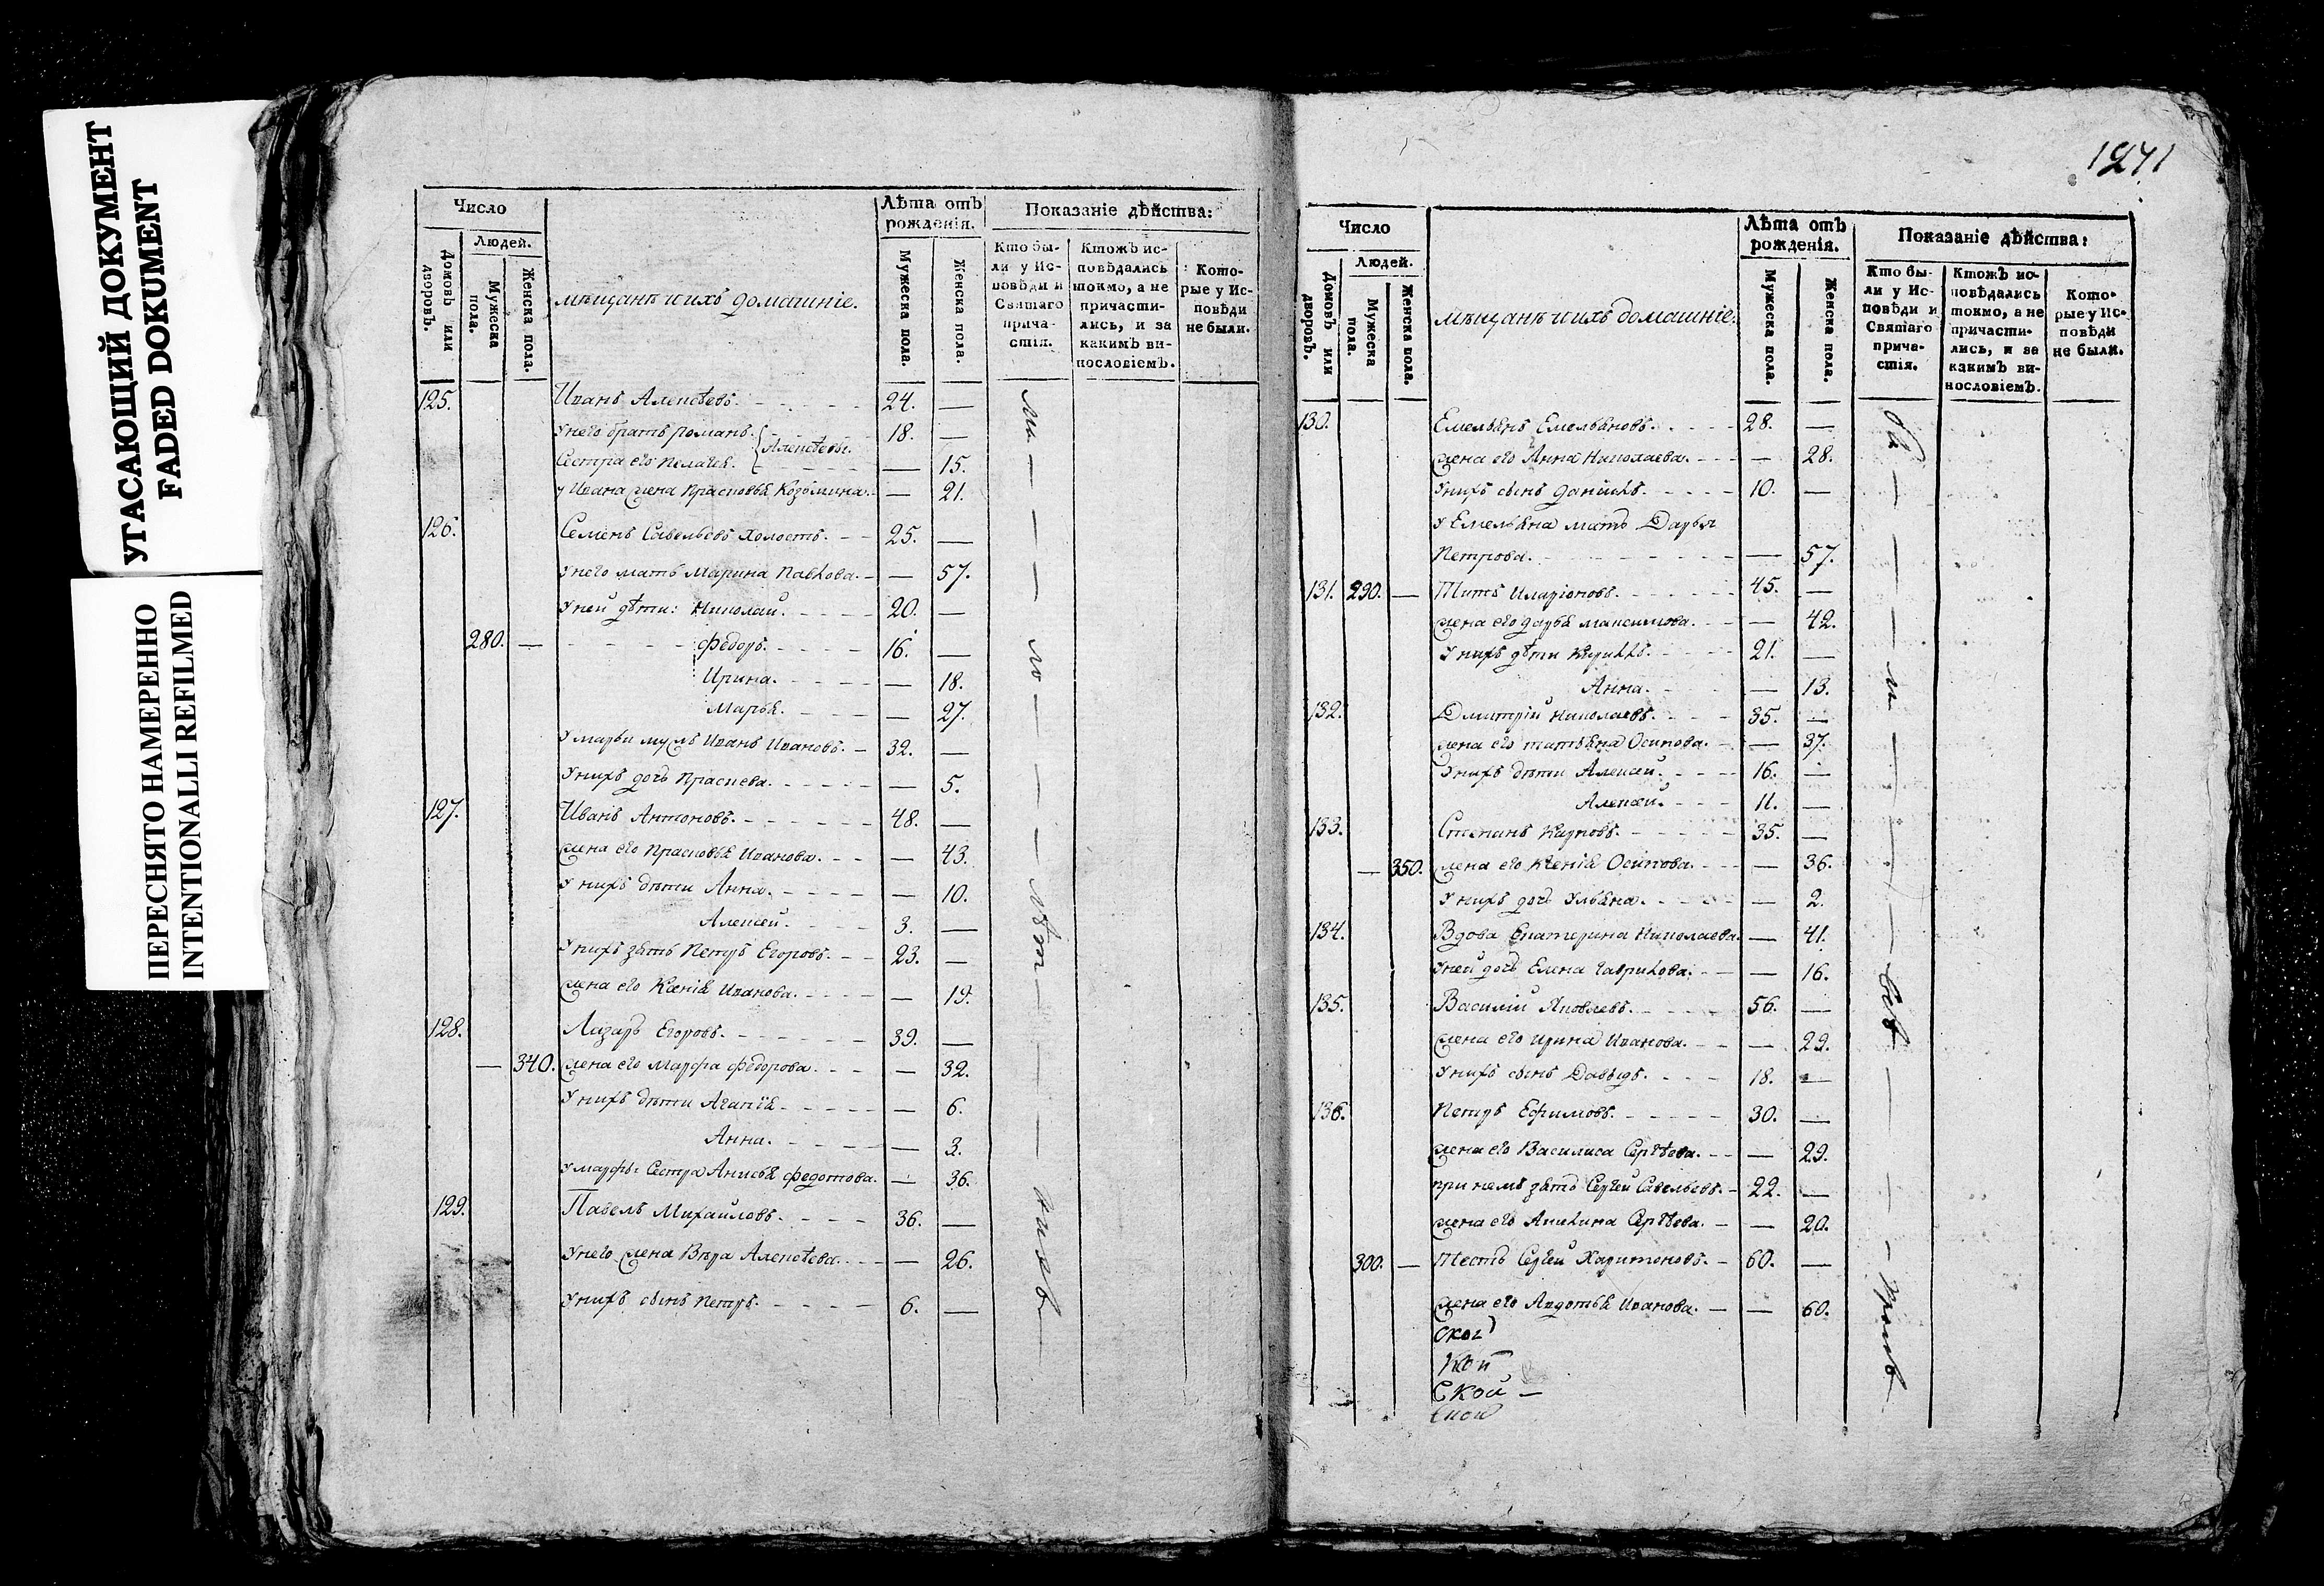 УГАСАЮЩИЙ ДОКУМЕНТ
FADED DOKUMENT
ПЕРЕСНЯТО НАМЕРЕННО
INTENTIONALLI REFILMED
Число
Людей.
Домовъ или дворовъ.
Мужеска пола.
Женска пола.
мѣщанѣ и ихъ домашніе.
Лѣта отъ рожденія.
Мужеска пола.
Женска пола.
Показаніе дѣйства:
Кто были у Исповѣди и Святаго причастія.
Ктожъ исповѣдались токмо, а не причастились, и за какимъ винословіемъ.
Которые у Исповѣди не были.
125. Иванъ Алексѣевъ. 24. —
У него братъ Романъ. 18. —
Алексѣевы.
Сестра его Пелагея. — 15.
у Ивана жена Прасковья Козьмина. — 21.
126. Семенъ Савельевъ холостъ. 25. —
У него мать Марина Павлова. — 57.
У ней дѣти: Николай. 20. —
280. — Федоръ. 16. —
Ирина. — 18.
Марья. — 27.
У марьи мужъ Иванъ Ивановъ. 32. —
У нихъ дочь Праскева. — 5.
127. Иванъ Антоновъ. 48. —
жена его Прасковья Иванова. — 43.
У нихъ дѣти Анна. — 10.
Алексей. 3. —
У нихъ зять Петръ Егоровъ. 23. —
жена его Ксенія Иванова. — 19.
128. Лазарь Егоровъ. 39. —
— 340. жена его Марфа Федорова. — 32.
У нихъ дѣти Агапія — 6.
Анна. — 3.
У марфы Сестра Анисья Федотова. — 36.
129. Павелъ Михайловъ. 36. —
У него жена Вѣра Алексѣева. — 26.
У нихъ сынъ Петръ. 6. —
1271
Число
Людей.
Домовъ или дворовъ.
Мужеска пола.
Женска пола.
мѣщанѣ и ихъ домашніе.
Лѣта отъ рожденія.
Мужеска пола.
Женска пола.
Показаніе дѣйства:
Кто были у Исповѣди и Святаго причастія.
Ктожъ исповѣдались токмо, а не причастились, и за какимъ винословіемъ.
Которые у Исповѣди не были.
130. Емельянъ Емельяновъ. 28. —
жена его Анна Николаева. — 28.
У нихъ сынъ Даніилъ. 10. —
У Емельяна мать Дарья
Петрова. — 57.
131. 290. — Титъ Иларіоновъ. 45. —
жена его дарья максимова. — 42.
У нихъ дѣти Кириллъ. 21. —
Анна. — 13.
132. Дмитрій Николаевъ. 35. —
жена его татьяна Осипова. — 37.
У нихъ дѣти Алексей. 16. —
Алексей. 11. —
133. Степанъ Карповъ. 35. —
— 350. жена его Ксенія Осипова. — 36.
У нихъ дочь Ульяна. — 2.
134. Вдова Екатерина Николаева. — 41.
У ней дочь Елена Гаврилова. — 16.
135. Василій Яковлевъ. 56. —
жена его Ирина Иванова. — 29.
У нихъ сынъ Давыдъ. 18. —
136. Петръ Ефимовъ. 30. —
жена его Василиса Сергѣева. — 29.
при немъ зять Сергей Савельевъ. 22. —
жена его Акилина Сергѣева. — 20.
300. — Тесть Сергей Харитоновъ. 60. —
жена его Авдотья Иванова. — 60.
ской —